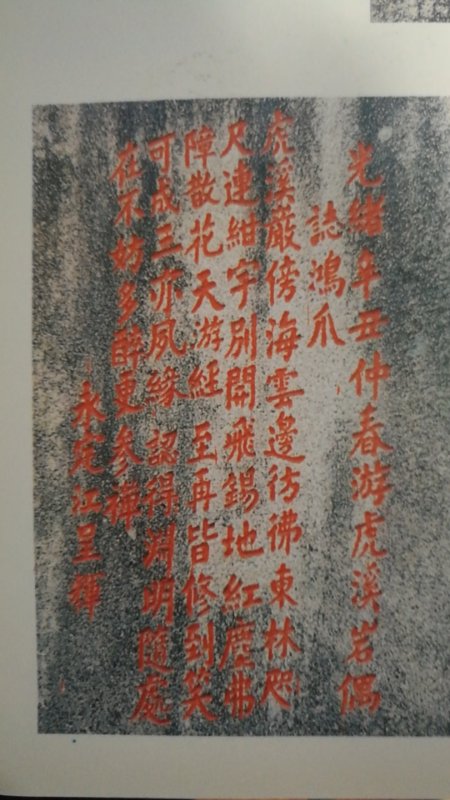 光緒辛丑仲春游虎溪岩偶
誌鴻爪
虎溪巖傍海雲邊彷彿東林咫
尺連紺宇別開飛錫地紅塵弗
障散花天游經至再皆修到笑
可成三亦夙緣認得淵明隨處
在不妨多醉更參禪
永定江呈輝